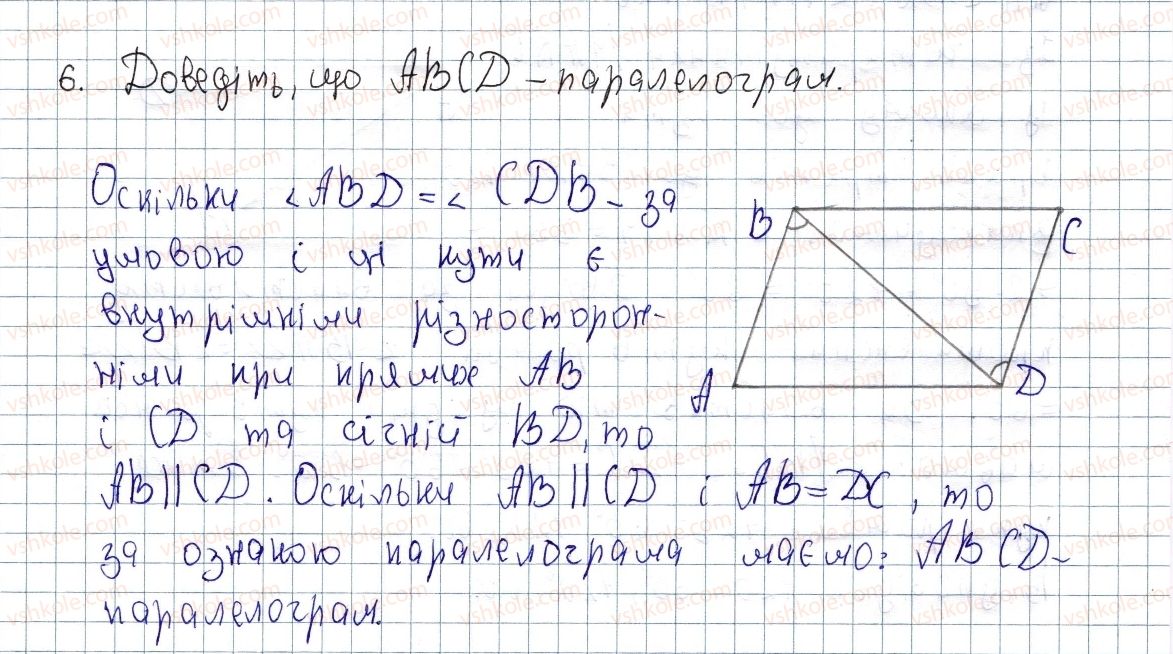 6. Доведіть, що ABCD - паралелограм.
Оскільки ∠ABD = ∠CDB - за
умовою і ці кути є
внутрішніми різносторон-
німи при прямих AB
і CD та січній BD, то
AB || CD. Оскільки AB || CD і AB = DC, то
за ознакою паралелограма маємо: ABCD -
паралелограм.
B
C
A
D
vshkole.com